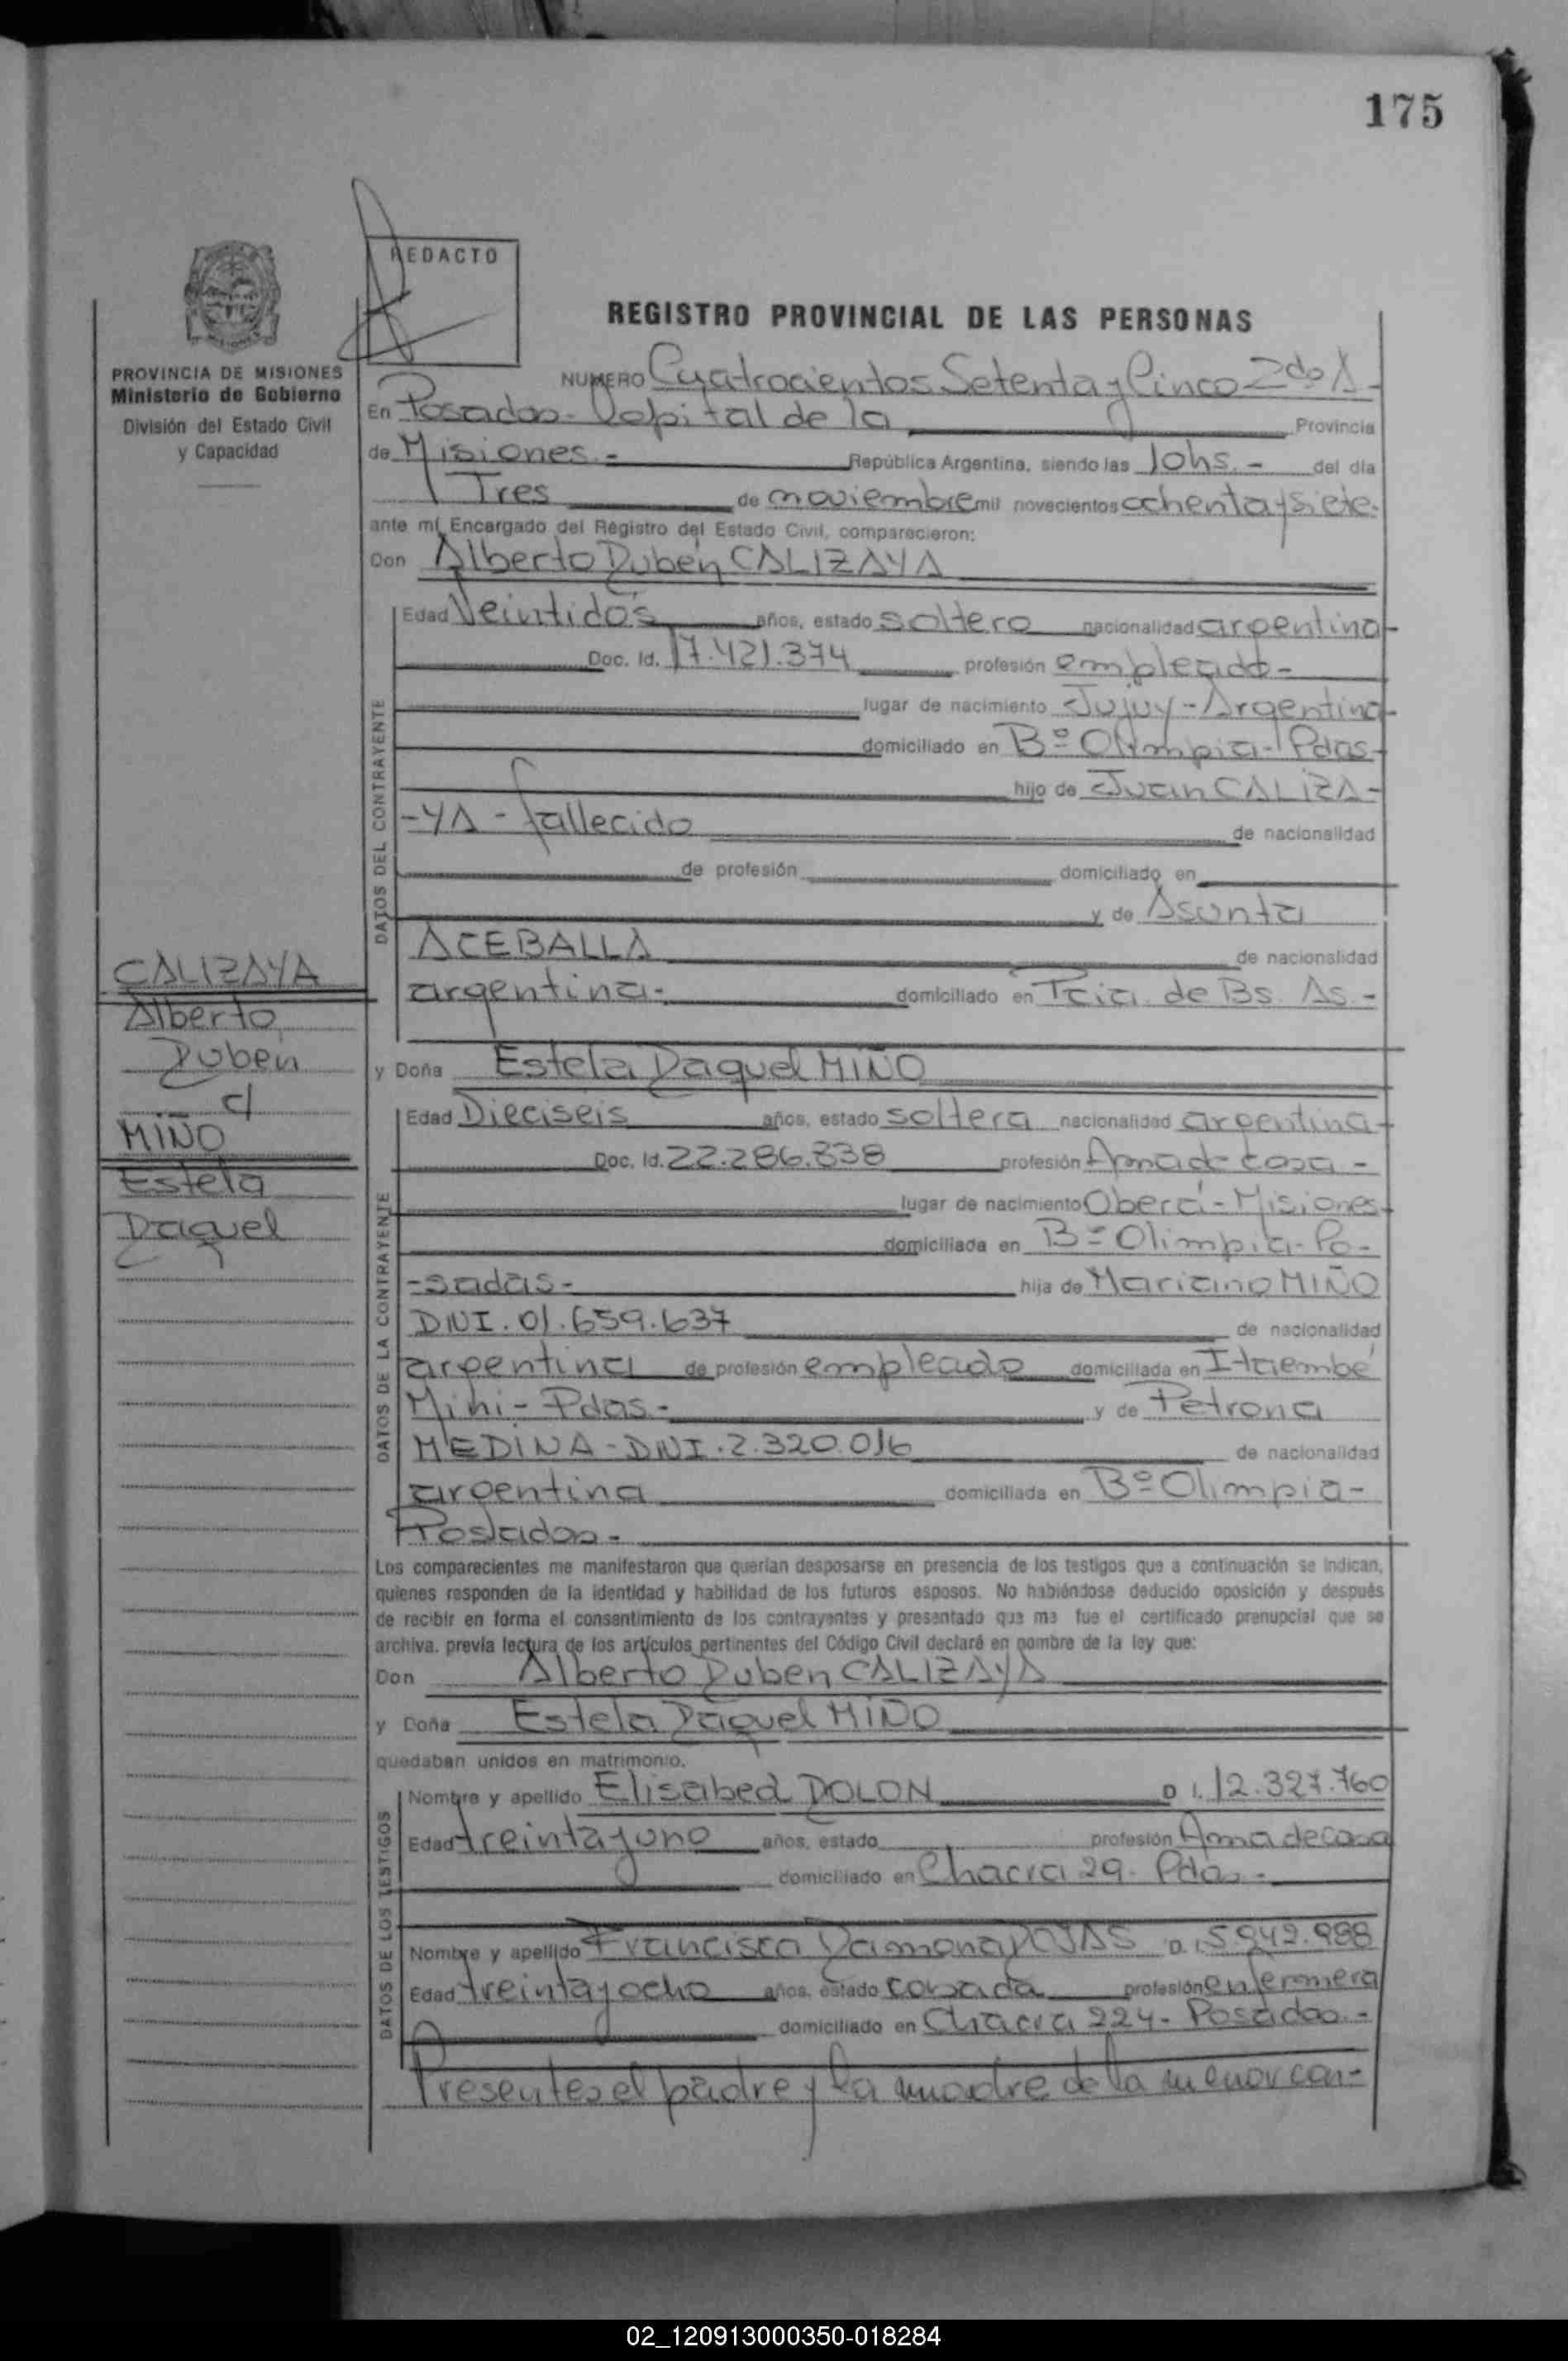 175
REDACTO
REGISTRO PROVINCIAL DE LAS PERSONAS
PROVINCIA DE MISIONES
Ministerio de Gobierno
División del Estado Civil
y Capacidad
NUMERO Cuatrocientos Setenta y Cinco 2do A
En Posadas - Capital de la Provincia
de Misiones.- República Argentina, siendo las 10hs.- del día
Tres de noviembre mil novecientos ochenta y siete.
ante mí, Encargado del Registro del Estado Civil, comparecieron:
Don Alberto Rubén CALIZAYA
DATOS DEL CONTRAYENTE
Edad Veintidós años, estado soltero nacionalidad argentina
Doc. Id. 17.421.374 profesión empleado-
lugar de nacimiento Jujuy - Argentina
domiciliado en Bº Olimpia - Pdas
hijo de Juan CALIZA-
-YA - fallecido de nacionalidad
de profesión domiciliado en
y de Asunta
ACEBALLA de nacionalidad
argentina.- domiciliado en Pcia. de Bs. As.-
CALIZAYA
Alberto
Rubén
c/
MIÑO
Estela
Raquel
y Doña Estela Raquel MIÑO
DATOS DE LA CONTRAYENTE
Edad Dieciseis años, estado soltera nacionalidad argentina
Doc. Id. 22.286.838 profesión Ama de casa -
lugar de nacimiento Oberá - Misiones
domiciliada en Bº Olimpia - Po-
-sadas- hija de Mariano MIÑO
DNI. 01.659.637 de nacionalidad
argentina de profesión empleado domiciliada en Itaembé
Mini - Pdas.- y de Petrona
MEDINA - DNI. 2.320.016 de nacionalidad
argentina domiciliada en Bº Olimpia -
Posadas.-
Los comparecientes me manifestaron que querían desposarse en presencia de los testigos que a continuación se indican,
quienes responden de la identidad y habilidad de los futuros esposos. No habiéndose deducido oposición y después
de recibir en forma el consentimiento de los contrayentes y presentado que me fue el certificado prenupcial que se
archiva. previa lectura de los artículos pertinentes del Código Civil declaré en nombre de la ley que:
Don Alberto Ruben CALIZAYA
y Doña Estela Raquel MIÑO
quedaban unidos en matrimonio.
DATOS DE LOS TESTIGOS
Nombre y apellido Elisabed ROLON D. I. 12.327.760
Edad treinta y uno años, estado profesión Ama de casa
domiciliado en Chacra 29 - Pdas.-
Nombre y apellido Francisca Ramona ROJAS D. I. 5.942.988
Edad treinta y ocho años, estado casada profesión enfermera
domiciliado en Chacra 224 - Posadas.-
Presentes el padre y la madre de la menor con-
02_120913000350-018284